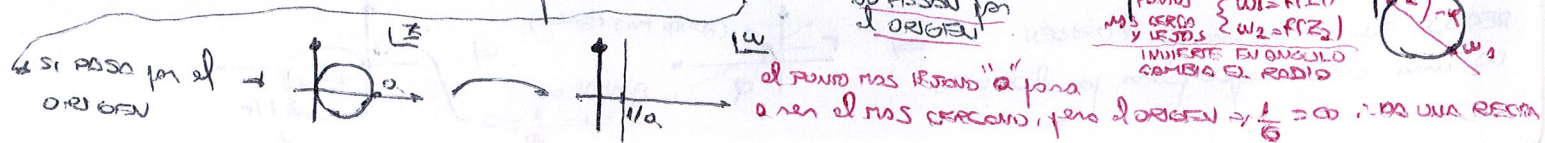 el ORIGEN
MAS CERCA
Y LEJOS
w₂ = f(Z₂)
INVIERTE EN ANGULO
CAMBIA EL RADIO
w₁
SI PASA por el
ORIGEN
Z
a
W
1/a
el PUNTO MAS LEJANO "a" pasa
a ser el MAS CERCANO, pero el ORIGEN ⇒ 1/0 = ∞ ∴ DA UNA RECTA